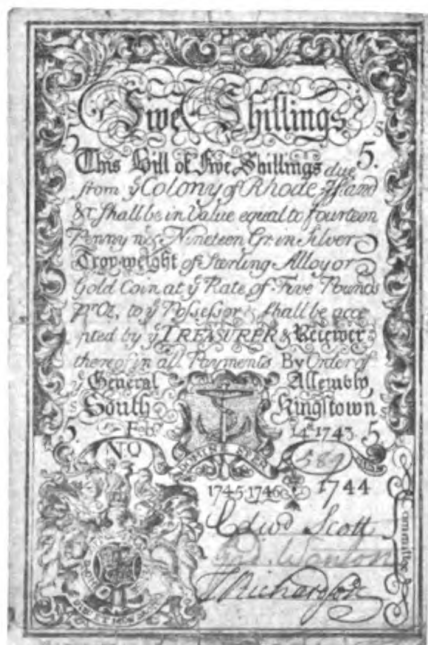 Five Shillings
5 5.
This Bill of Five Shillings due
from yͤ Colony of Rhode Island
&c. Shall be in Value equal to fourteen
Penny wt. Nineteen Gr. in Silver
Troy weight of Sterling Alloy or
Gold Coin at yͤ Rate of Five Pounds
pr Oz, to yͤ Possessor & shall be acce
pted by yͤ TREASURER & Receiver
thereof in all Payments By Order of
yͤ General Assembly
South Kingstown
5. Feb 14 1743 5
No
1745 1746 1744
Edwd Scott
Wanton
Richardson
Committee